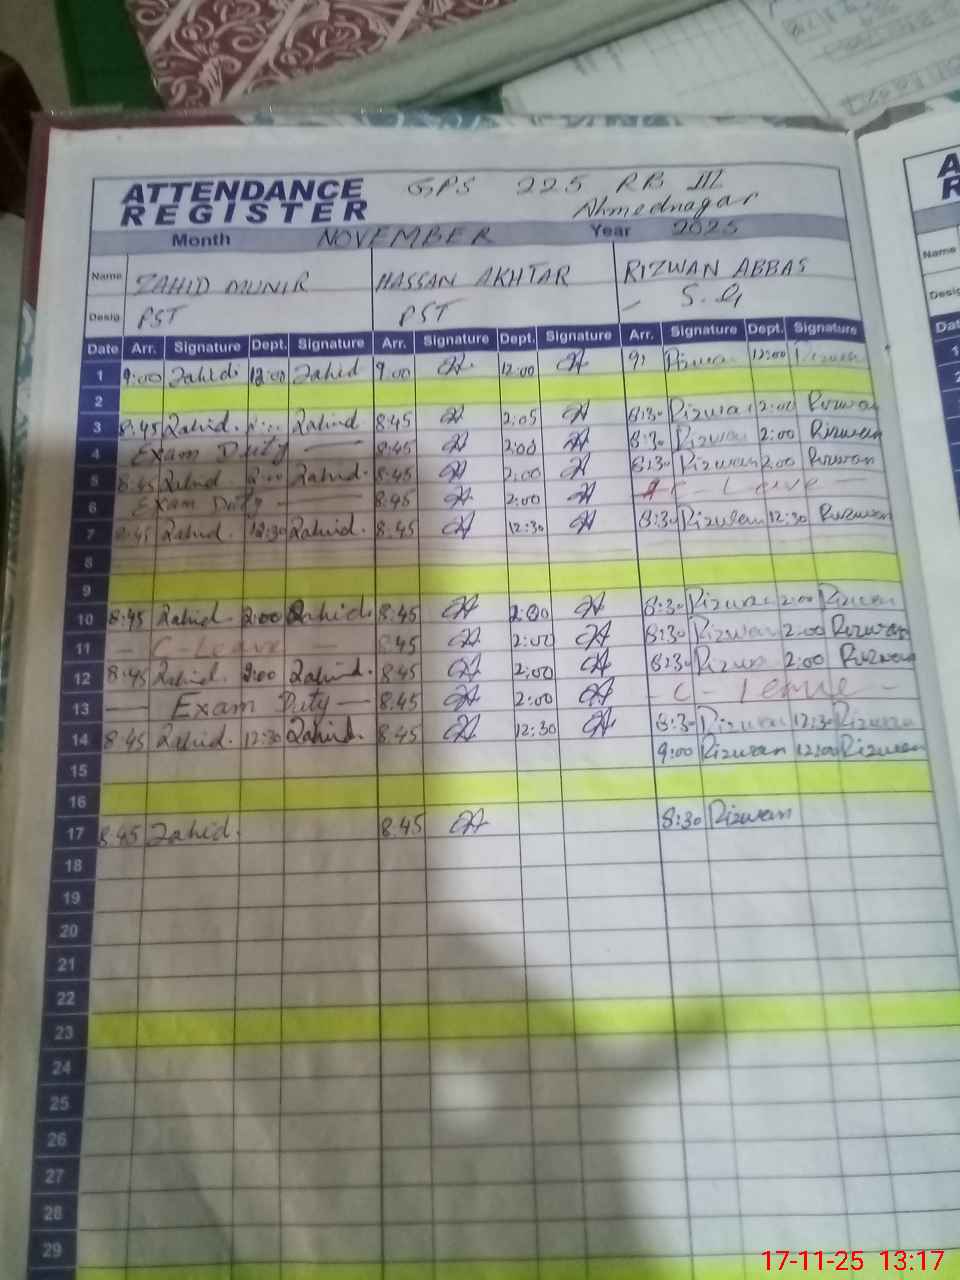 ATTENDANCE REGISTER
GPS 225 RB III
Ahmednagar
Month NOVEMBER Year 2025
Name ZAHID MUNIR HASSAN AKHTAR RIZWAN ABBAS
Desig PST PST S.G
Date Arr. Signature Dept. Signature Arr. Signature Dept. Signature Arr. Signature Dept. Signature
1 9:00 Zahid 12:00 Zahid 9:00 12:00 Rizwan 12:00 Rizwan
2
3 8:45 Zahid. Zahid 8:45 2:05 8:30 Rizwan 2:00 Rizwan
4 Exam Duty 8:45 2:00 8:30 Rizwan 2:00 Rizwan
5 8:45 Zahid 2:00 Zahid. 8:45 2:00 8:30 Rizwan 2:00 Rizwan
6 Exam Duty 8:45 2:00 Leave
7 8:45 Zahid. 12:30 Zahid. 8:45 12:30 8:30 Rizwan 12:30 Rizwan
8
9
10 8:45 Zahid. 2:00 Zahid. 8:45 2:00 8:30 Rizwan 2:00 Rizwan
11 C-Leave 8:45 2:00 8:30 Rizwan 2:00 Rizwan
12 8:45 Zahid. 2:00 Zahid. 8:45 2:00 8:30 Rizwan 2:00 Rizwan
13 Exam Duty 8.45 2:00 - C - Leave -
14 8:45 Zahid. 12:30 Zahid. 8.45 12:30 8:30 Rizwan 12:30 Rizwan
15 9:00 Rizwan 12:00 Rizwan
16
17 8:45 Zahid. 8.45 8:30 Rizwan
18
19
20
21
22
23
24
25
26
27
28
29
A
R
Name
Desig
Dat
17-11-25 13:17